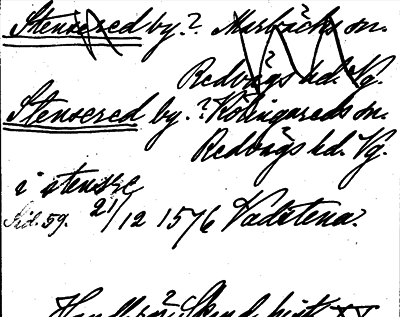 Stensered by.? Marbäcks sn.
Redvägs hd. Vg.
Stensered by.? Kölingareds sn.
Redvägs hd. Vg.
i stensre
Frid. 59. 21/12 1576 Vadstena.
Handl. rör. Skand. hist.